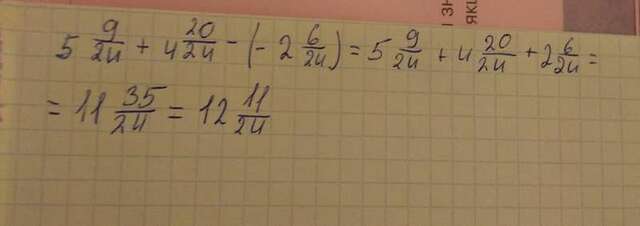 5 9/24 + 4 20/24 - (- 2 6/24) = 5 9/24 + 4 20/24 + 2 6/24 =
= 11 35/24 = 12 11/24